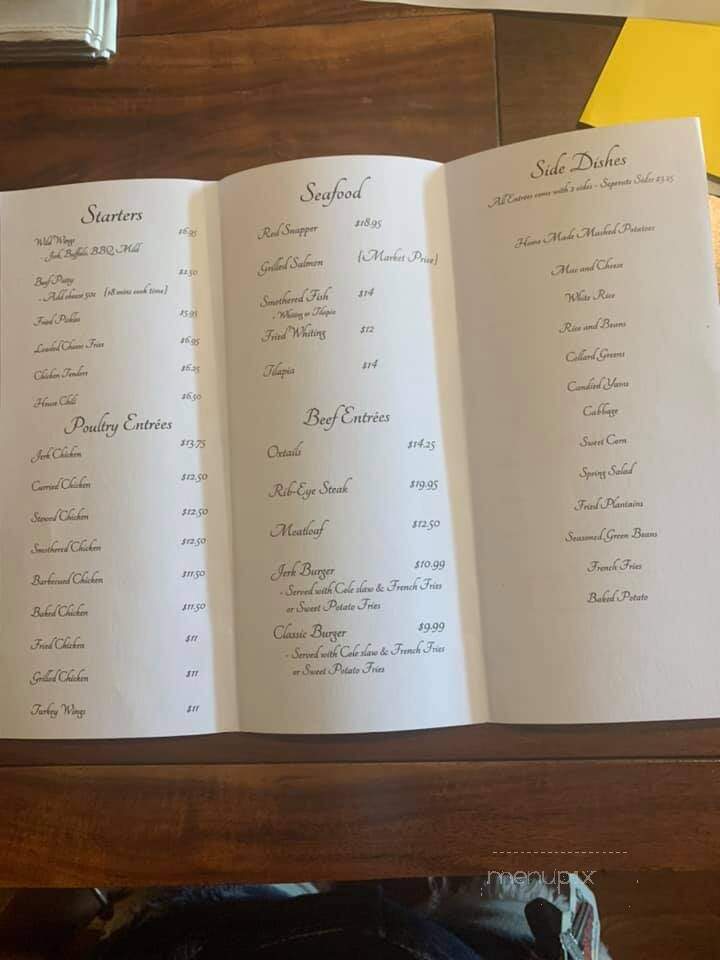 Starters
Wild Wings $6.95
- Jerk, Buffalo, BBQ, Mild
Beef Patty $2.50
- Add cheese 50¢ {18 mins cook time}
Fried Pickles $5.95
Loaded Cheese Fries $6.95
Chicken Tenders $6.25
House Chili $6.50
Poultry Entrées
Jerk Chicken $13.75
Curried Chicken $12.50
Stewed Chicken $12.50
Smothered Chicken $12.50
Barbecued Chicken $11.50
Baked Chicken $11.50
Fried Chicken $11
Grilled Chicken $11
Turkey Wings $11
Seafood
Red Snapper $18.95
Grilled Salmon {Market Price}
Smothered Fish $14
- Whiting or Tilapia
Fried Whiting $12
Tilapia $14
Beef Entrées
Oxtails $14.25
Rib-Eye Steak $19.95
Meatloaf $12.50
Jerk Burger $10.99
- Served with Cole slaw & French Fries
or Sweet Potato Fries
Classic Burger $9.99
- Served with Cole slaw & French Fries
or Sweet Potato Fries
Side Dishes
All Entrées come with 2 sides - Seperate Sides $3.25
Home Made Mashed Potatoes
Mac and Cheese
White Rice
Rice and Beans
Collard Greens
Candied Yams
Cabbage
Sweet Corn
Spring Salad
Fried Plantains
Seasoned Green Beans
French Fries
Baked Potato
menupix